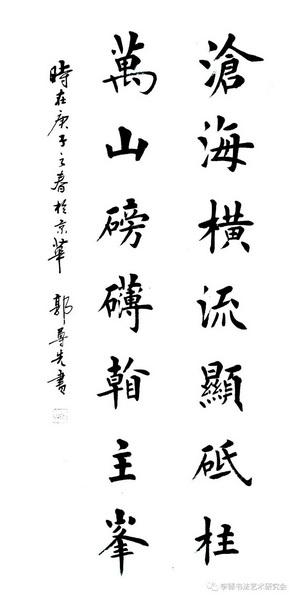 滄海横流顯砥柱
萬山磅礴看主峯
時在庚子之春於京華 郭尊先書
李铎书法艺术研究会